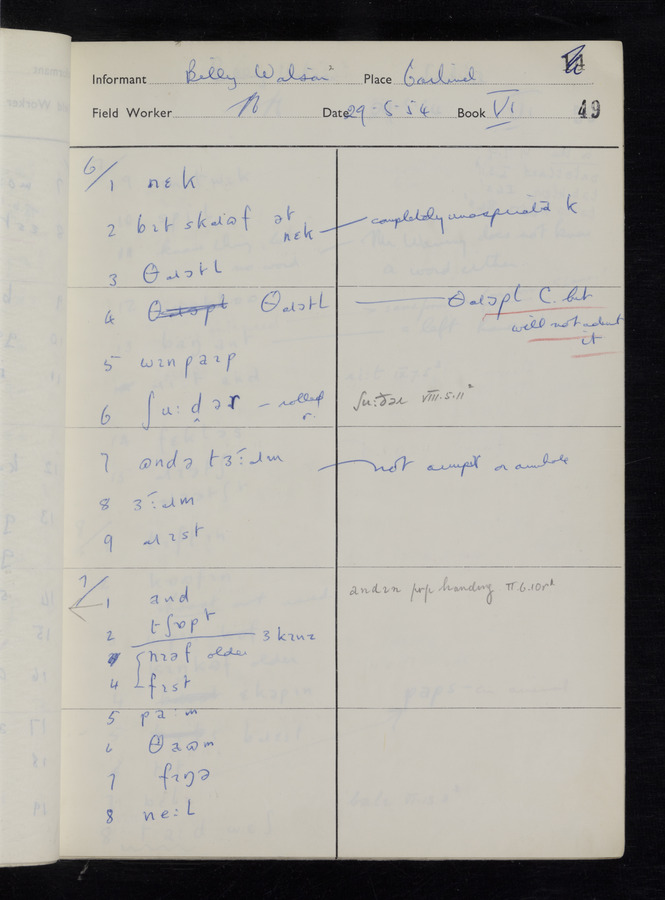 Informant Billy Watson Place
Field Worker N Date 29-5-54 Book VI 49
6/1 nɛk
2 bɪt skɹəf ət nɛk — completely unaspirated k
3 θɹɔtl
4 θɹɔpl θɹɔtl — θɹɔpl C. but will not admit it
5 wɪnpaɪp
6 ʃu:dər — rolled r. ʃu:ðəɹ VIII.5.11
7 — not armpit or armhole
8 ɜ:ɹm
9 ɹɪst
7/1 and andɪn pɪp handing
2 tʃɒpt — 3 kɪnz
3 nɪəf older
4 fɪst
5 pa:m
6
7 fɪŋə
8 ne:l